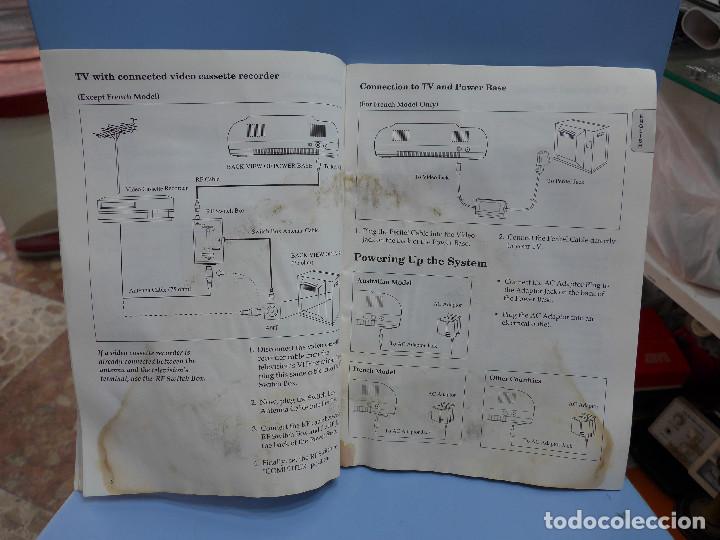 TV with connected video cassette recorder
(Except French Model)
BACK VIEW OF POWER BASE
RF Cable
Video Cassette Recorder
RF Switch Box
Switch Box Antenna Cable
BACK VIEW
Antenna Cable (75 ohm)
If a video cassette recorder is
already connected between the
antenna and the television's
terminal, use the RF Switch Box.
1. Disconnect the
plug this same cable
Switch Box.
2. Now, plug the Switch
Antenna Cable into
3. Connect the RF
RF Switch Box and
the back of the Power Base.
4. Finally, set the RF Switch
"COMPUTER"
Connection to TV and Power Base
(For French Model Only)
To Video Jack
To Peritel Jack
1. Plug the Peritel Cable into the Video
Jack on the back of the Power Base.
2. Connect the Peritel Cable directly
to your TV.
Powering Up the System
Australian Model
AC Adaptor
To AC Adaptor Jack
• Connect the AC Adaptor Plug to
the Adaptor Jack on the back of
the Power Base.
• Plug the AC Adaptor into an
electrical outlet.
French Model
AC Adaptor
To AC Adaptor Jack
Other Countries
AC Adaptor
To AC Adaptor Jack
todocoleccion.net